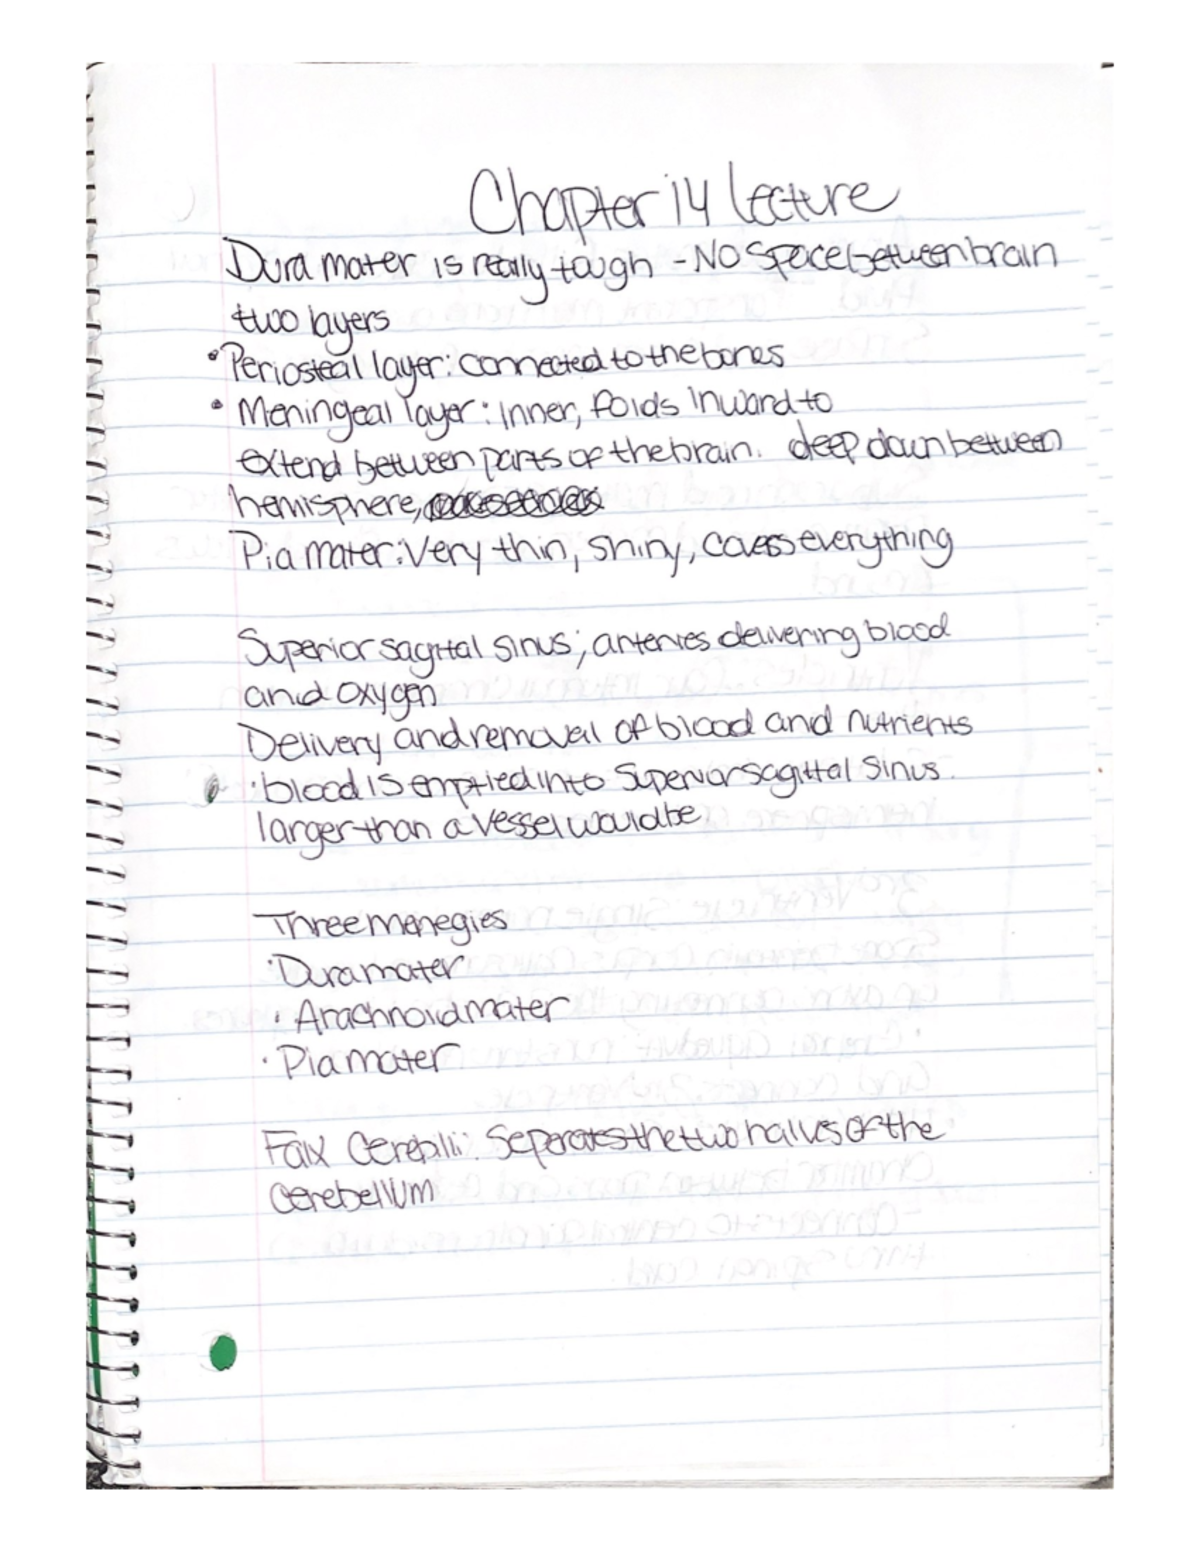 Chapter 14 lecture
Dura mater is really tough - No space between brain
two layers
• Periosteal layer: connected to the bones
• Meningeal layer: inner, folds inward to
extend between parts of the brain. deep down between
hemisphere,
Pia mater: Very thin, shiny, covers everything
Superior sagital sinus; arteries delivering blood
and oxygen
Delivery and removal of blood and nutrients
· blood is emptied into Superior sagittal sinus.
larger than a vessel would be
Three menegies
· Dura mater
· Arachnoid mater
· Pia mater
Falx Cereblli: Seperates the two halves of the
cerebellum